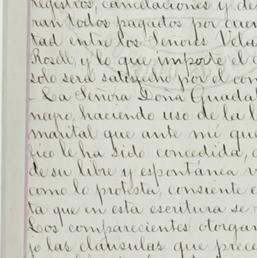 registros, cancelaciones y de
ran todos pagados por cuen
tad entre los Señores Vela
Rosell, y lo que importe el c
solo será satisfecho por el com
- La Señora Doña Guadal
negro, haciendo uso de la l
marital que ante mí que
fico le ha sido concedida, d
de su libre y espontánea v
como lo protesta, consiente e
ta que en esta escritura se
Los comparecientes otorgan
jo las cláusulas que prece